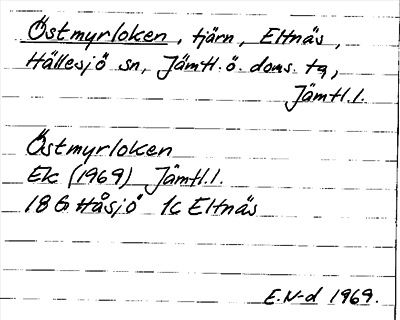 Östmyrloken, tjärn, Eltnäs,
Hällesjö sn, Jämtl. ö. doms. tg,
Jämtl. l.
Östmyrloken
Ek (1969) Jämtl. l.
18G Håsjö 1c Eltnäs
E. N-d 1969.